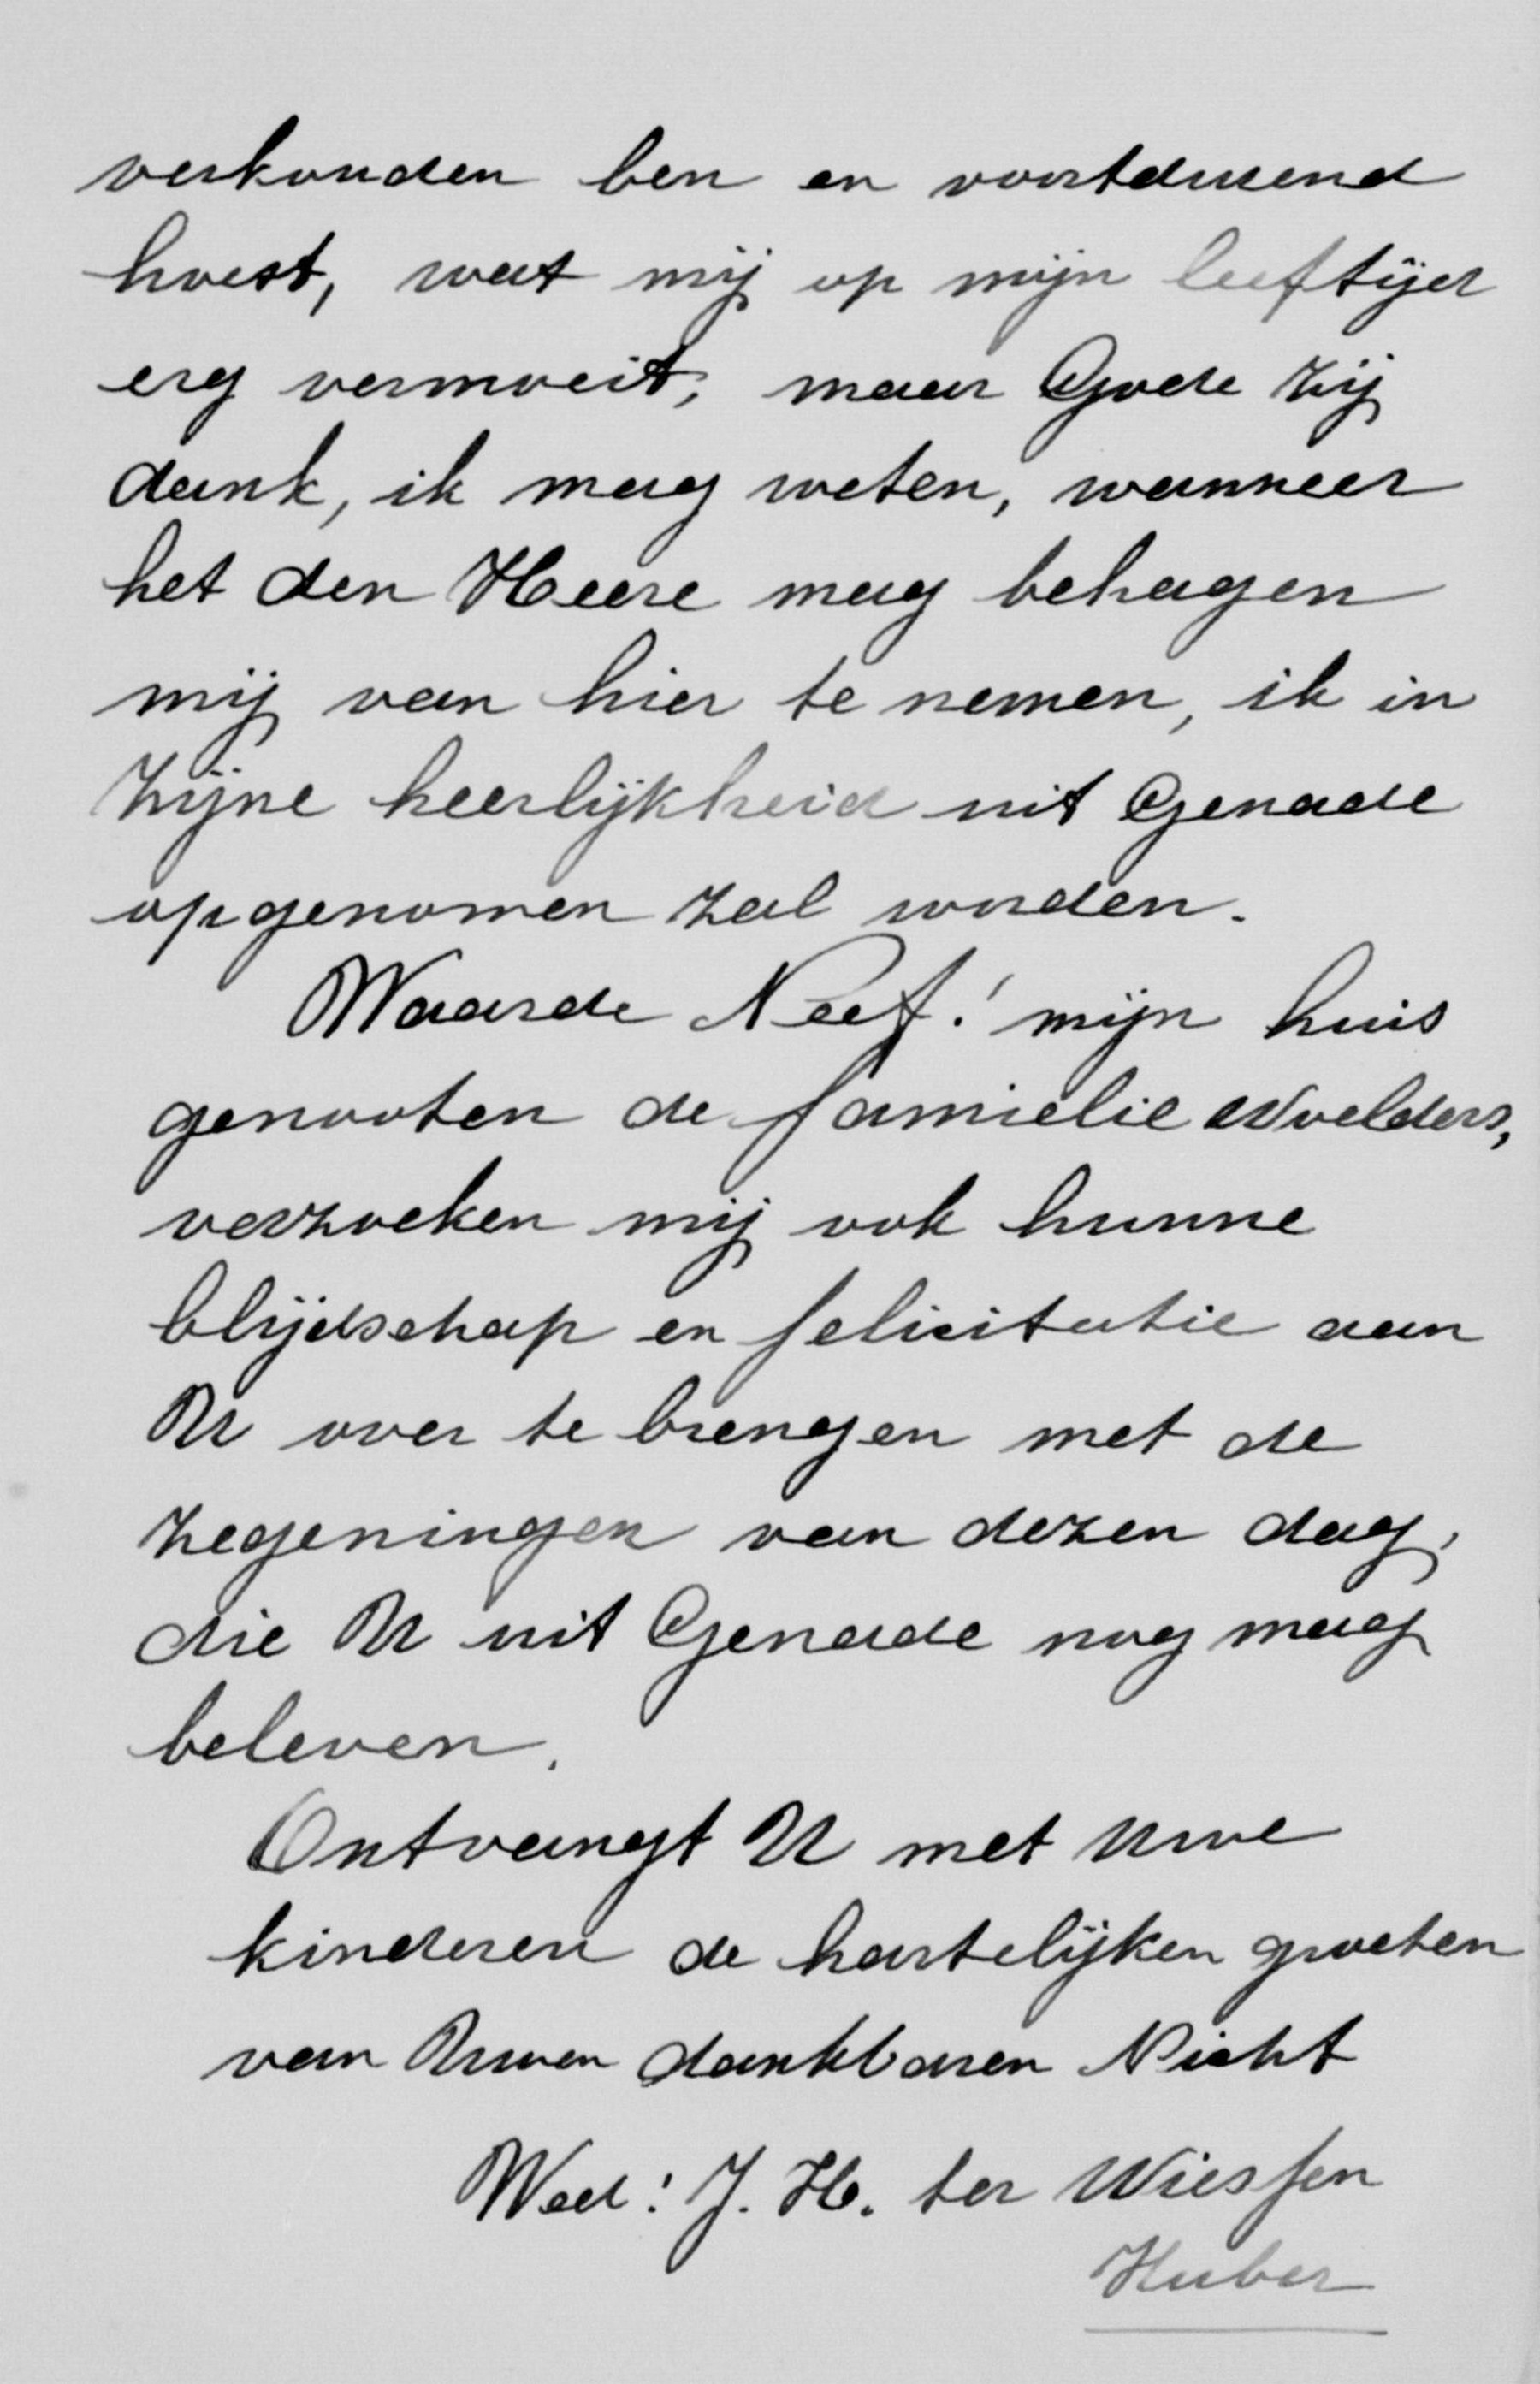 verkouden ben en voortdurend
hoest, wat mij op mijn leeftijd
erg vermoeit, maar Gode zij
dank, ik mag weten, wanneer
het den Heere mag behagen
mij van hier te nemen, ik in
Zijne heerlijkheid uit Genade
opgenomen zal worden.
Waarde Neef! mijn huis
genooten de familie Woelders,
verzoeken mij ook hunne
blijdschap en felicitatie aan
U over te brengen met de
zegeningen van dezen dag,
die U uit Genade nog mag
beleven.
Ontvangt U met Uwe
kinderen de hartelijken groeten
van Uwen dankbaren Nicht
Wed: J. H. ter Wiessen
Huber